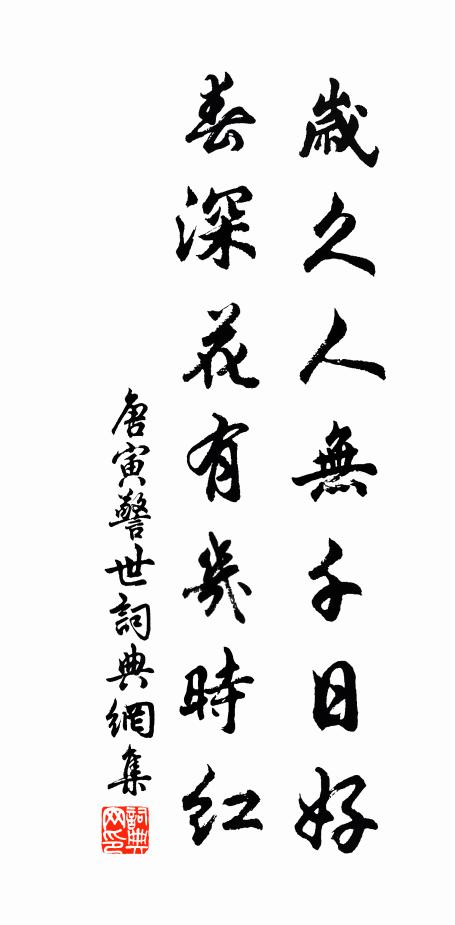 歲久人無千日好
春深花有幾時紅
唐寅警世詞典網集
詞典网印